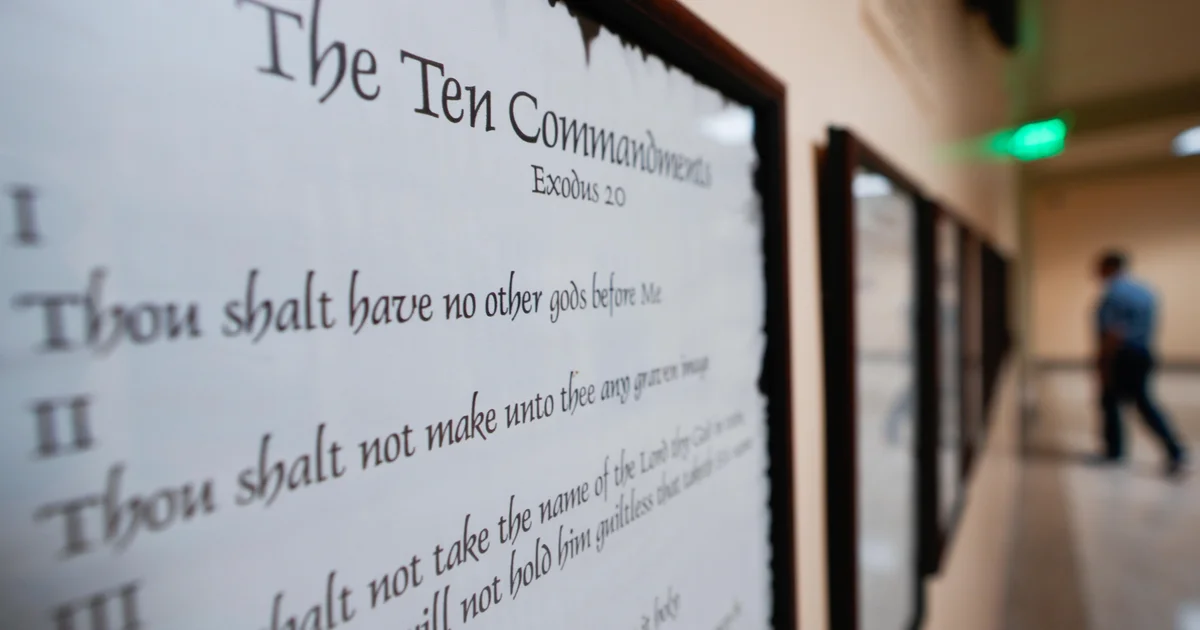 The Ten Commandments
Exodus 20
I
Thou shalt have no other gods before Me
II
Thou shalt not make unto thee any graven image
III
shalt not take the name of the Lord thy God in vain,
will not hold him guiltless that taketh
it holy